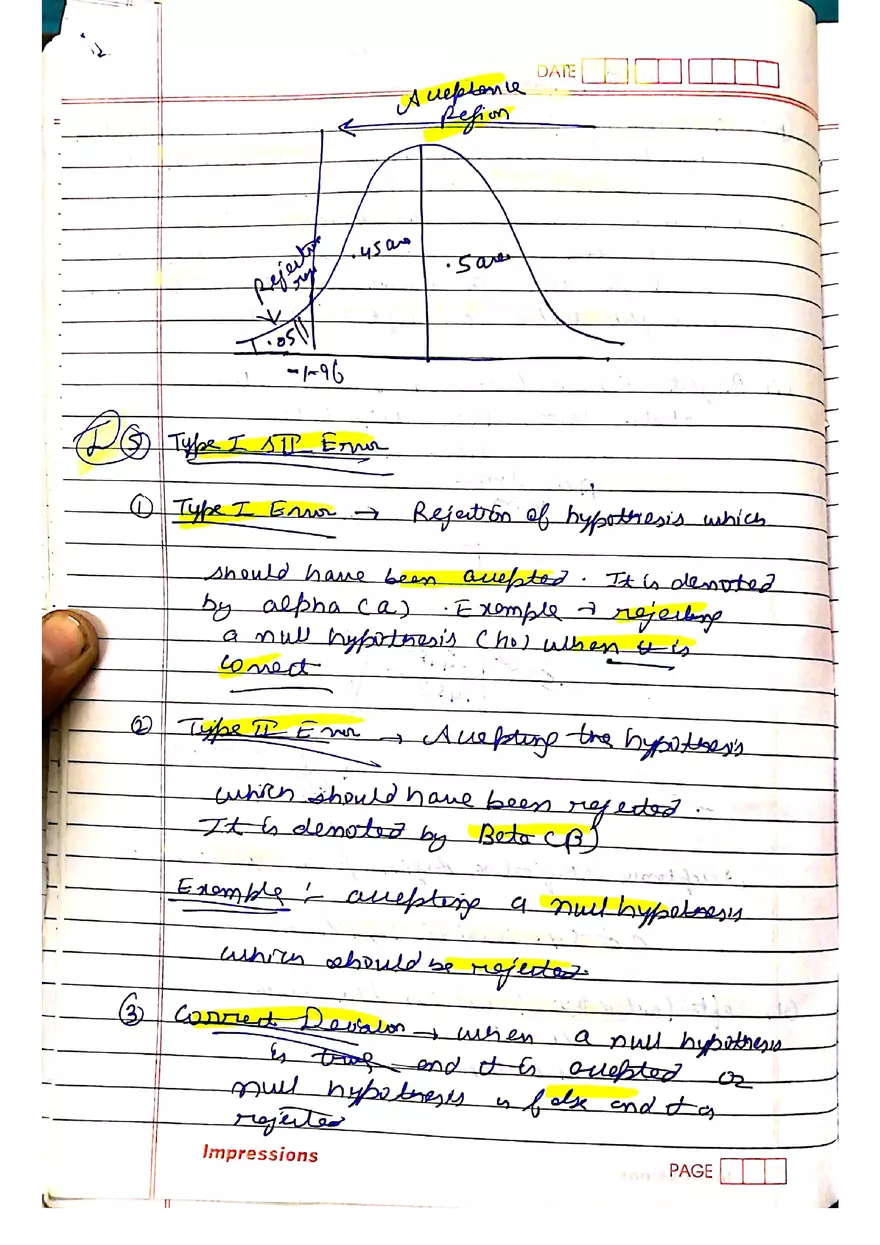 DATE
Acceptance
Region
Rejection
.45 area
.5 area
.05
-1.96
I ⑤ Type I & II Error
① Type I Error → Rejection of hypothesis which
should have been accepted. It is denoted
by alpha (a). Example → rejecting
a null hypothesis (ho) when it is
correct
② Type II Error → Accepting the hypothesis
which should have been rejected.
It is denoted by Beta (β)
Example :- accepting a null hypothesis
which should be rejected.
③ Correct Decision → when a null hypothesis
is true and it is accepted or
null hypothesis is false and it is
rejected
Impressions
PAGE